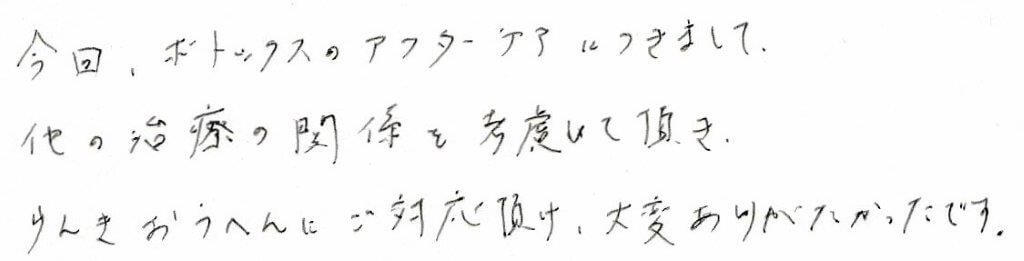 今回、ボトックスのアフターケアにつきまして、
他の治療の関係を考慮して頂き、
りんきおうへんにご対応頂け、大変ありがたかったです。